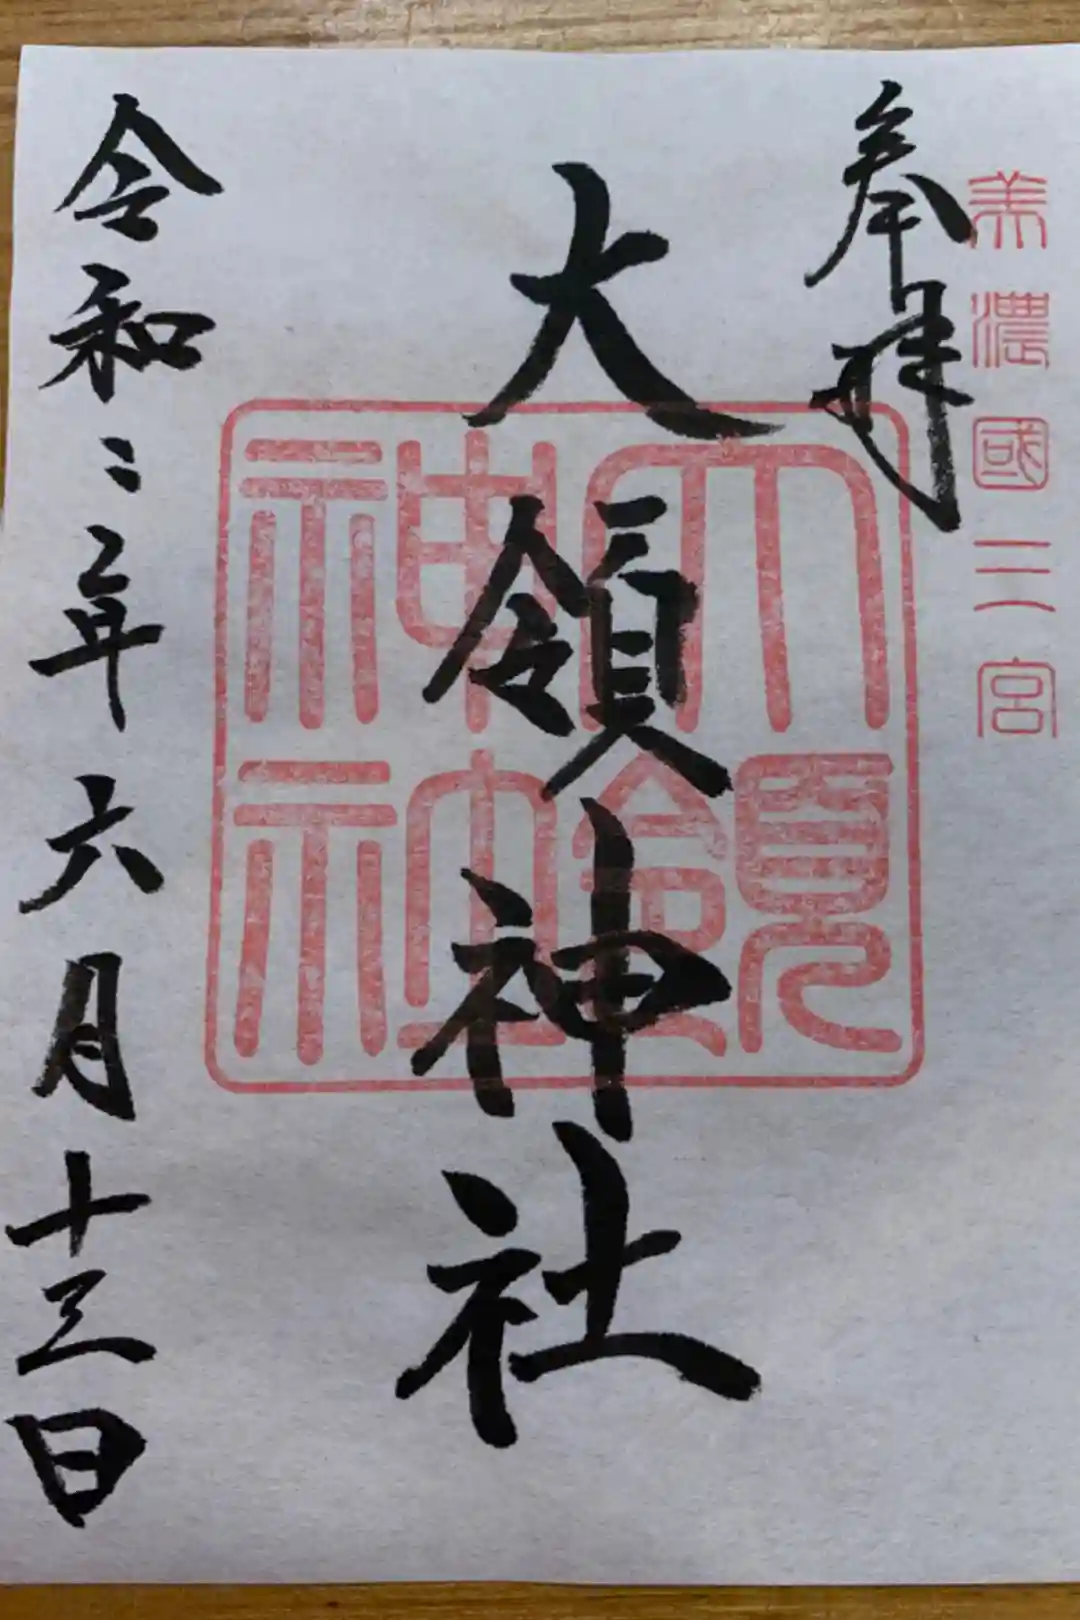 美濃國二宮
奉拝
大領神社
大領神社
令和二年六月十三日